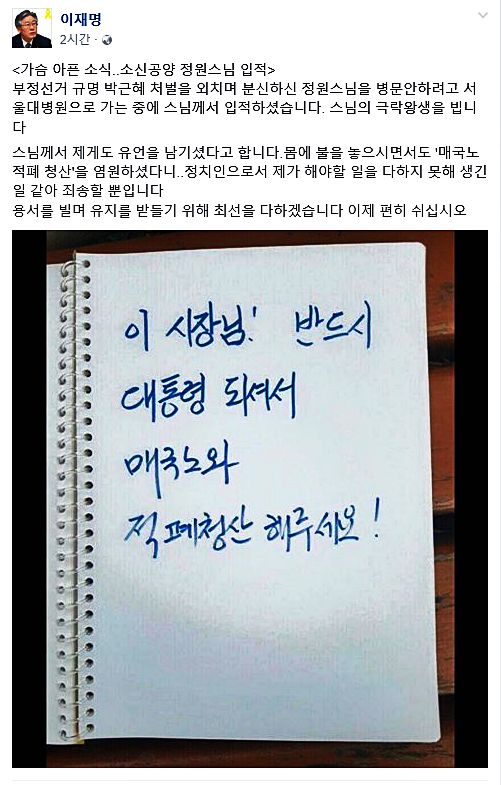 이재명
2시간 ·
<가슴 아픈 소식..소신공양 정원스님 입적>
부정선거 규명 박근혜 처벌을 외치며 분신하신 정원스님을 병문안하려고 서
울대병원으로 가는 중에 스님께서 입적하셨습니다. 스님의 극락왕생을 빕니
다
스님께서 제게도 유언을 남기셨다고 합니다.몸에 불을 놓으시면서도 '매국노
적폐 청산'을 염원하셨다니..정치인으로서 제가 해야할 일을 다하지 못해 생긴
일 같아 죄송할 뿐입니다
용서를 빌며 유지를 받들기 위해 최선을 다하겠습니다 이제 편히 쉬십시오
이 시장님! 반드시
대통령 되셔서
매국노와
적폐청산 해주세요!